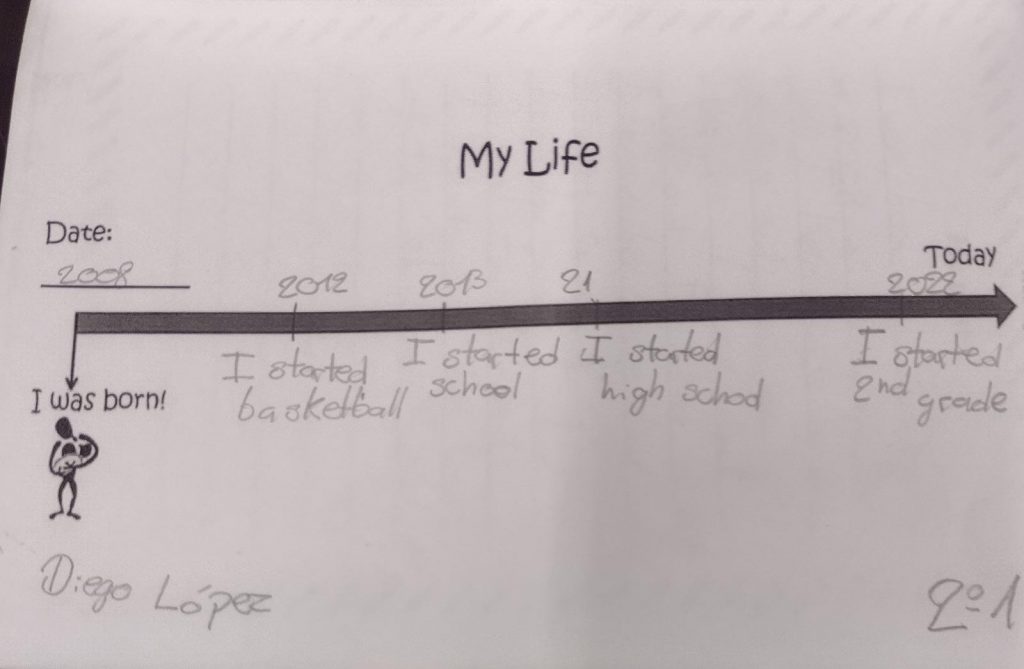 My Life
Date:
2008
Today
2012 2013 21 2022
I was born!
I started
basketball
I started
school
I started
high school
I started
2nd grade
Diego López
2º1